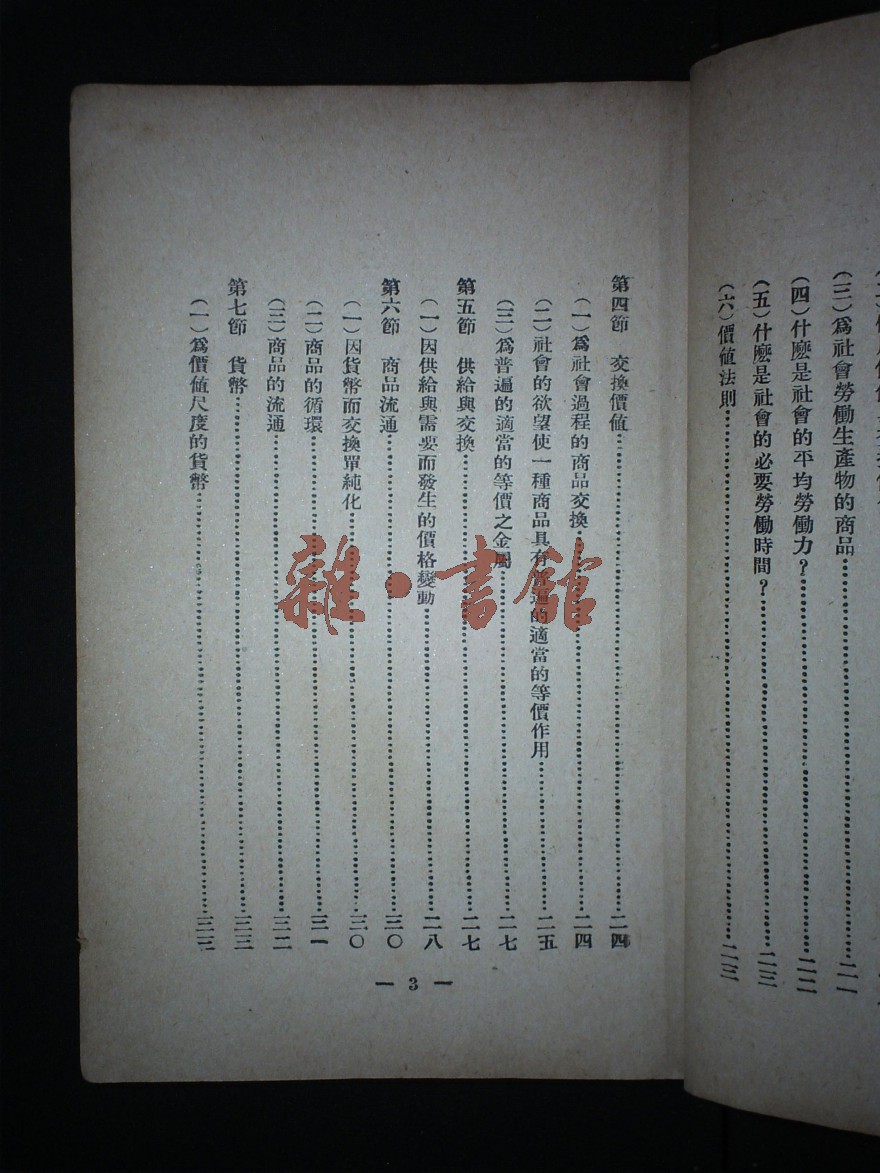 (三)爲社會勞働生產物的商品……二一
(四)什麽是社會的平均勞働力?……二二
(五)什麽是社會的必要勞働時間?……二三
(六)價值法則……二三
第四節 交換價值……二四
(一)爲社會過程的商品交換……二四
(二)社會的欲望使一種商品具有普遍的適當的等價作用……二五
(三)爲普遍的適當的等價之金屬……二七
第五節 供給與交換……二七
(一)因供給與需要而發生的價格變動……二八
第六節 商品流通……三〇
(一)因貨幣而交換單純化……三〇
(二)商品的循環……三一
(三)商品的流通……三二
第七節 貨幣……三三
(一)爲價值尺度的貨幣……三三
— 3 —
雜·書館